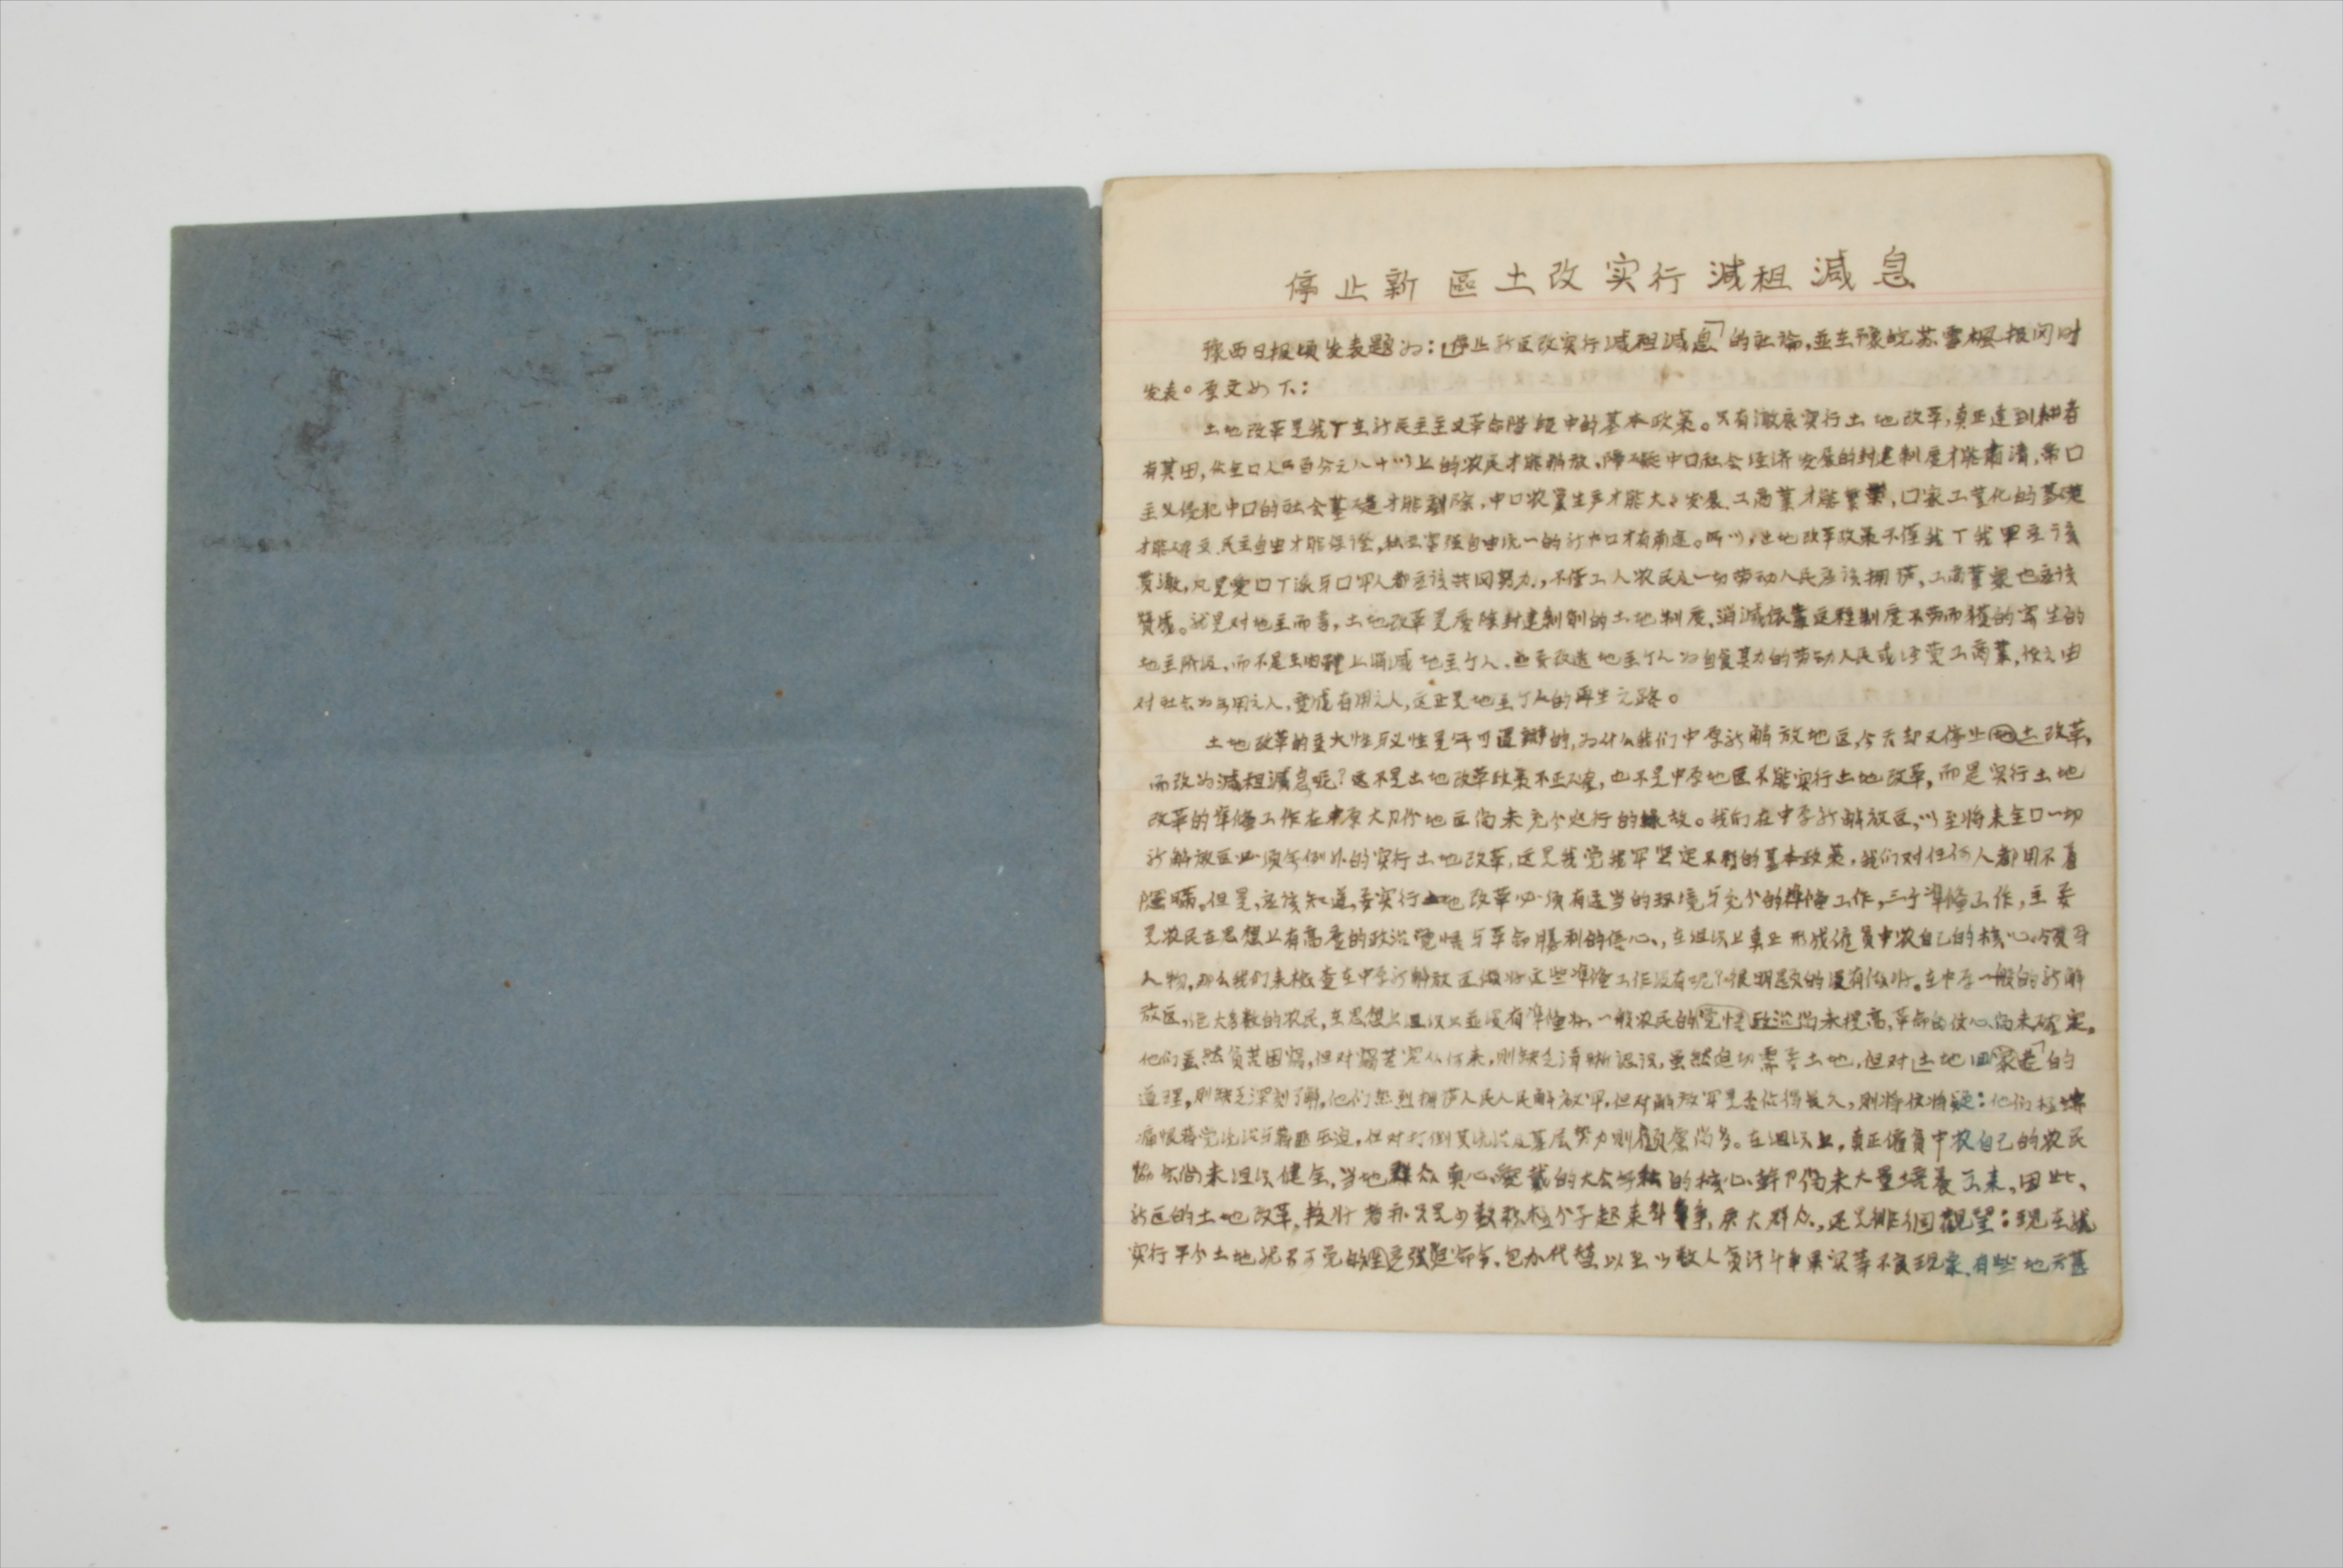 停止新區土改实行減租減息
豫西日报頃发表題为：「停止新区改实行减租减息」的社論，並在豫皖苏雪楓报同时
发表。原文如下：
土地改革是我丁在新民主主义革命階段中的基本政策。只有澈底实行土地改革，真正達到耕者
有其田，佔全口人口百分之八十以上的农民才能解放，障碍中口社会経济发展的封建制度才能肃清，帝口
主义侵犯中口的社会基礎才能剷除，中口农業生产才能大々发展，工商業才能繁荣，口家工業化的基礎
才能確立，民主自由才能保證，独立富强自由统一的新中口才有前途。所以，土地改革政策不僅我丁我軍应该
貫澈，凡是爱口丁派与口军人都应该共同努力，不僅工人农民及一切劳动人民应该拥护，工商業家也应该
贊成。就是对地主而言，土地改革是廢除封建剝削的土地制度，消滅依靠這種制度不劳而獲的寄生的
地主阶级，而不是在肉体上消滅地主个人，並要改造地主个人为自食其力的劳动人民或经营工商業，使之由
对社会为無用之人，变成有用之人，这正是地主个人的再生之路。
土地改革的重大性与义性是無可置辯的，为什么我们中原新解放地区，今天却又停止土改革，
而改为減租減息呢？这不是土地改革政策不正確，也不是中原地区不能实行土地改革，而是实行土地
改革的準備工作在中原大部份地区尚未充分进行的緣故。我们在中原新解放区，以至将来全口一切
新解放区必须無例外的实行土地改革，这是我党我军坚定不移的基本政策，我们对任何人都用不着
隱瞞。但是，应该知道，要实行土地改革必须有适当的环境与充分的準備工作，三个準備工作，主要
是农民在思想上有高度的政治觉悟与革命勝利的信心，在组织上真正形成僱貧中农自己的核心领导
人物，那么我们来檢查在中原新解放区做好这些準備工作没有呢？很明显的没有做好。在中原一般的新解
放区，绝大多数的农民，在思想上组织上並没有準備好，一般农民的觉悟政治尚未提高，革命的信心尚未確定。
他们虽然貧苦困窮，但对窮苦究从何来，則缺乏清晰認識，虽然迫切需要土地，但对「土地回家」的
道理，則缺乏深刻了解，他们热烈拥护人民人民解放军，但对解放军是否佔得長久，則将信将疑；他们极端
痛恨蒋党统治与蒋匪压迫，但对打倒其统治及基层势力則顧慮尚多。在组织上，真正僱貧中农自己的农民
协会尚未组织健全，当地群众真心爱戴的大公無私的核心幹部尚未大量培養出来，因此、
新区的土地改革，较好者亦只是少数积极分子起来斗争，广大群众，还是徘徊观望；现在就
实行平分土地，就不可免的强迫命令，包办代替以至少数人貪污斗争果实等不良现象，有些地方甚